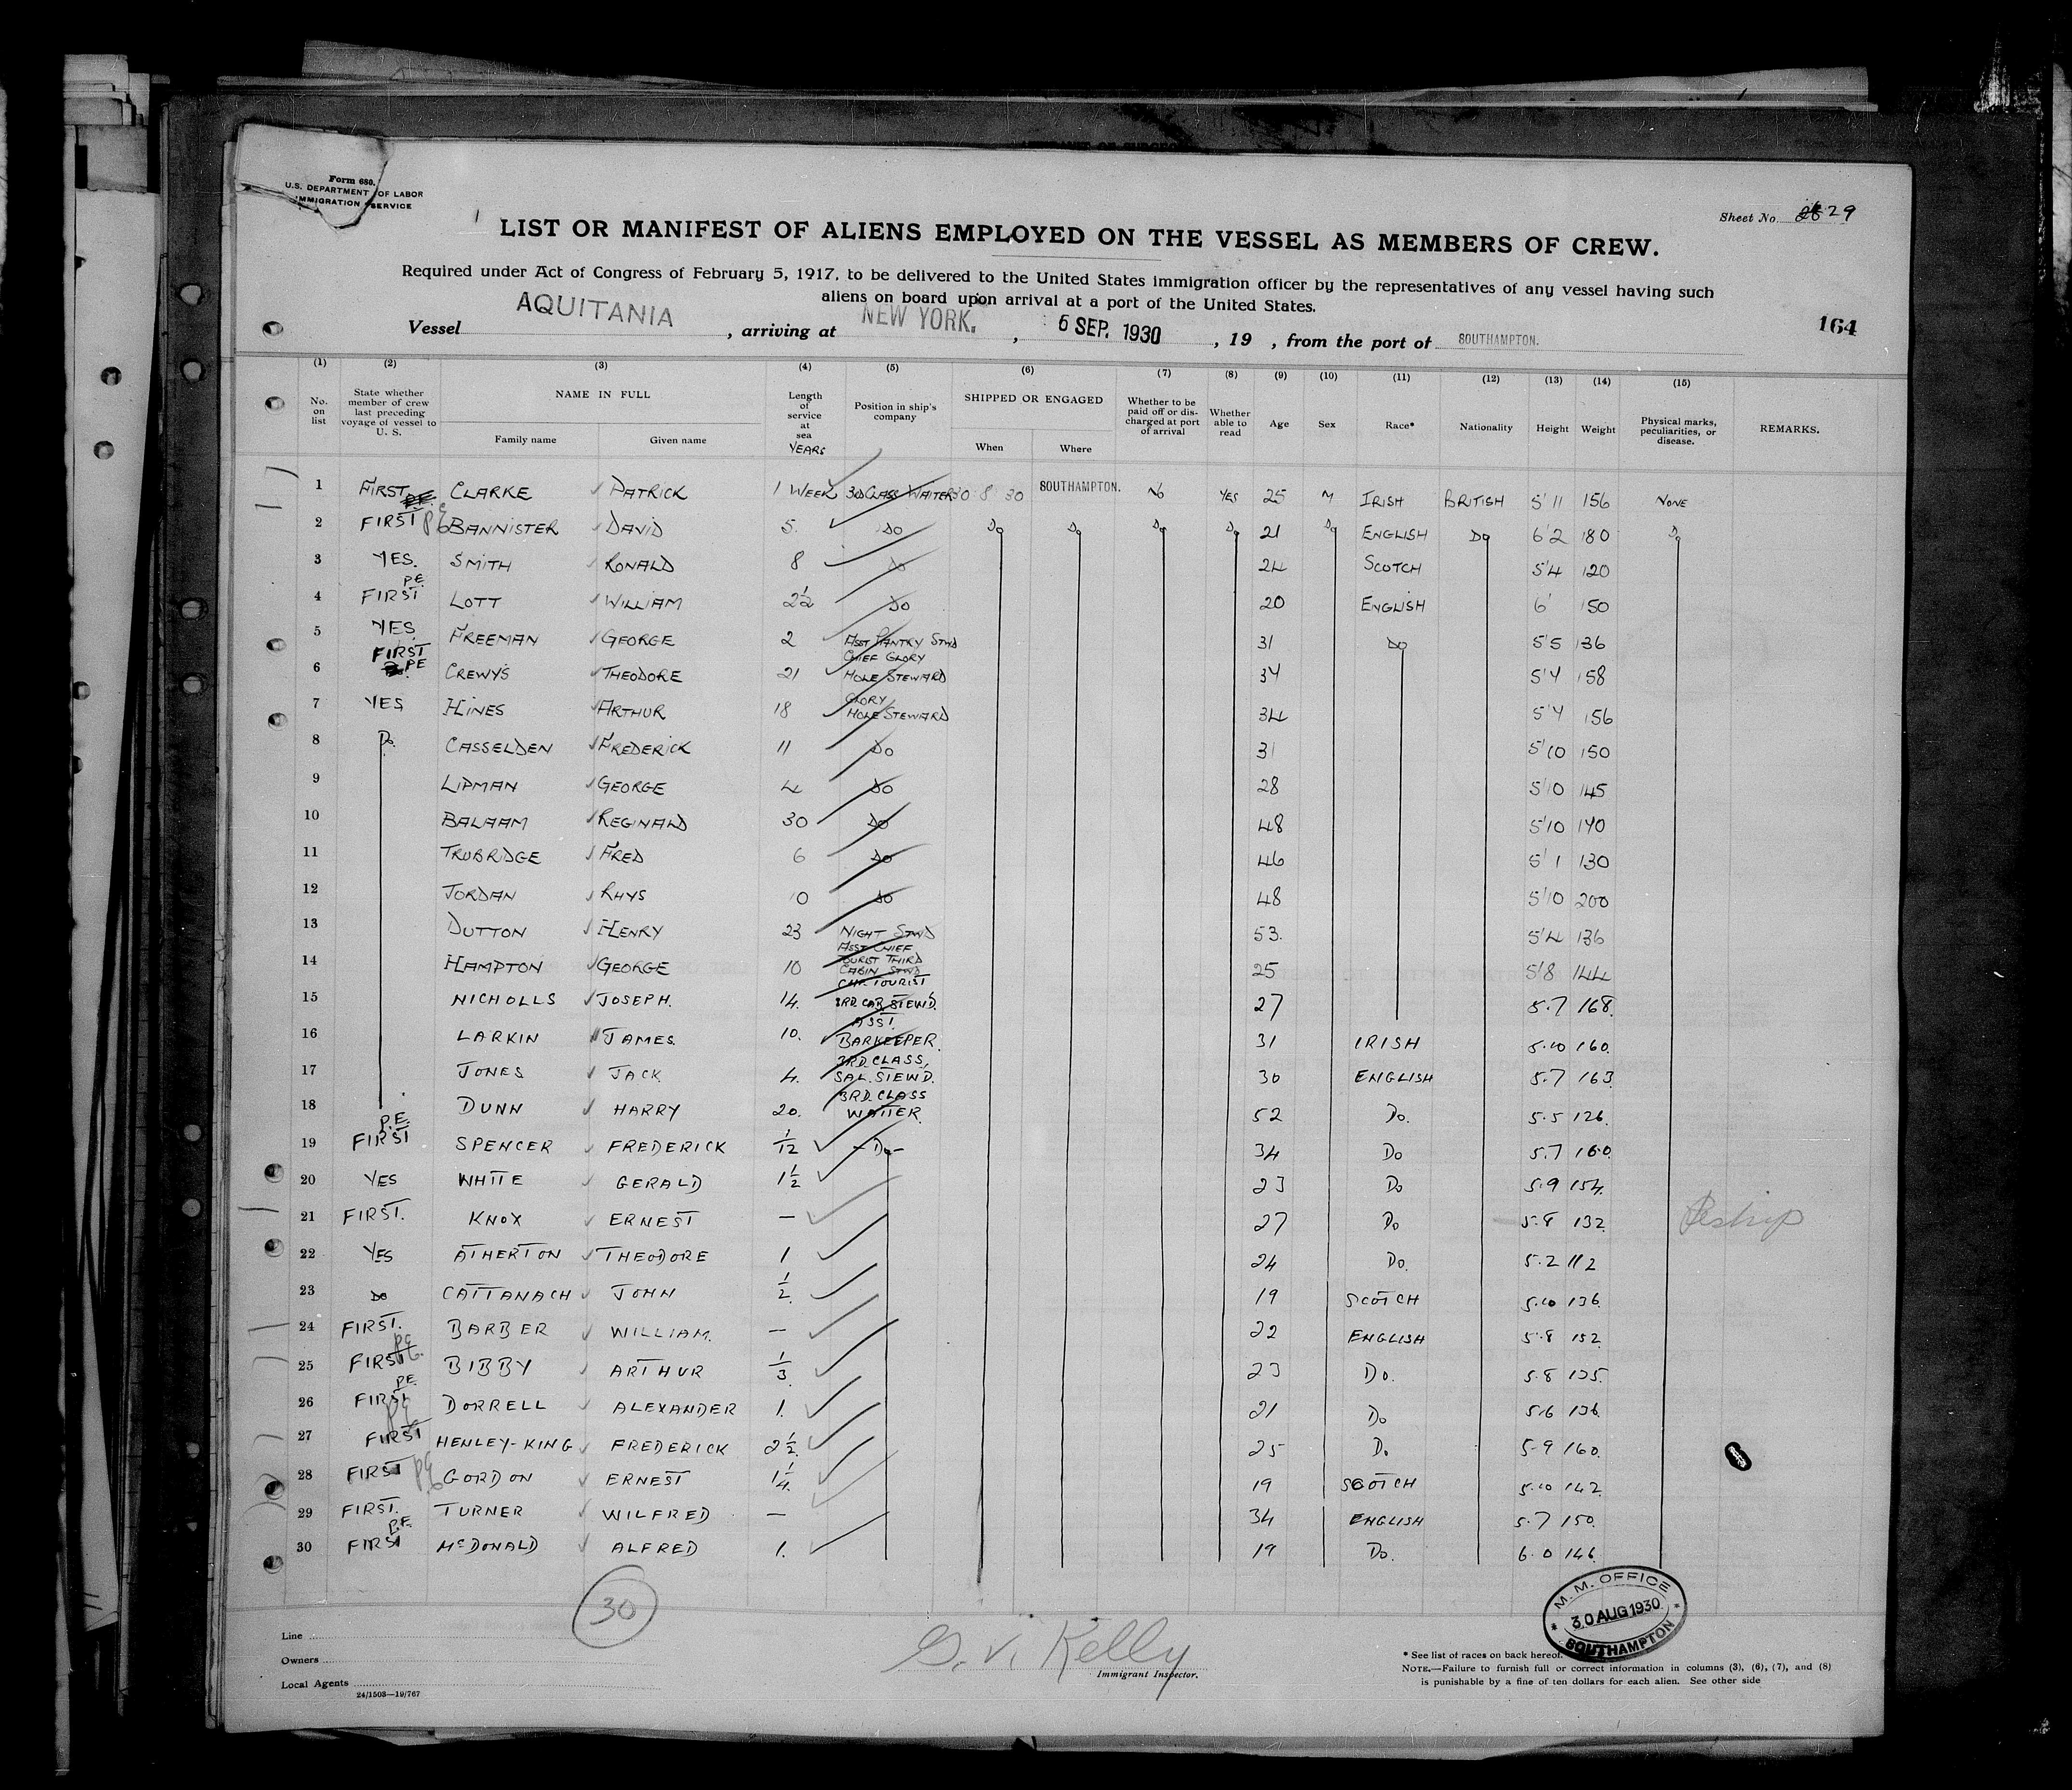 Form 680.
U.S. DEPARTMENT OF LABOR
IMMIGRATION SERVICE
Sheet No. 29
LIST OR MANIFEST OF ALIENS EMPLOYED ON THE VESSEL AS MEMBERS OF CREW.
Required under Act of Congress of February 5, 1917, to be delivered to the United States immigration officer by the representatives of any vessel having such
aliens on board upon arrival at a port of the United States.
Vessel AQUITANIA, arriving at NEW YORK., 6 SEP. 1930, 19 , from the port of SOUTHAMPTON.
164
(1) (2) (3) (4) (5) (6) (7) (8) (9) (10) (11) (12) (13) (14) (15)
No. on list
State whether member of crew last preceding voyage of vessel to U. S.
NAME IN FULL
Family name
Given name
Length of service at sea
YEARS
Position in ship's company
SHIPPED OR ENGAGED
When
Where
Whether to be paid off or discharged at port of arrival
Whether able to read
Age
Sex
Race*
Nationality
Height
Weight
Physical marks, peculiarities, or disease.
REMARKS.
1 FIRST CLARKE PATRICK 1 WEEK 3RD CLASS WAITER 30 8 30 SOUTHAMPTON. No YES 25 M IRISH BRITISH 5'11 156 NONE
2 FIRST PE BANNISTER DAVID 5. DO Do Do Do Do 21 Do ENGLISH Do 6'2 180 Do
3 YES. SMITH RONALD 8 DO 24 SCOTCH 5'4 120
4 P.E. FIRST LOTT WILLIAM 2½ DO 20 ENGLISH 6' 150
5 YES FREEMAN GEORGE 2 ASST PANTRY STWD 31 DO 5'5 136
6 FIRST PE CREWYS THEODORE 21 CHIEF GLORY HOLE STEWARD 34 5'4 158
7 YES HINES ARTHUR 18 GLORY HOLE STEWARD 34 5'4 156
8 Do. CASSELDEN FREDERICK 11 DO 31 5'10 150
9 LIPMAN GEORGE 4 DO 28 5'10 145
10 BALAAM REGINALD 30 DO 48 5'10 140
11 TRUBRIDGE FRED 6 DO 46 5'1 130
12 JORDAN RHYS 10 DO 48 5'10 200
13 DUTTON HENRY 23 NIGHT STWD 53. 5'4 136
14 HAMPTON GEORGE 10 ASST CHIEF TOURIST THIRD CABIN STWD 25 5'8 144
15 NICHOLLS JOSEPH. 14. CHF. TOURIST 3RD. CAB. STEW'D. 27 5.7 168.
16 LARKIN JAMES 10. ASST. BARKEEPER. 31 IRISH 5.10 160.
17 JONES JACK 4. 3RD. CLASS, SAL. STEWD. 30 ENGLISH 5.7 163
18 DUNN HARRY 20. 3RD. CLASS WAITER. 52 Do. 5.5 126.
19 P.E. FIRST SPENCER FREDERICK 1/12 - Do - 34 Do 5.7 160.
20 YES WHITE GERALD 1½ 23 Do 5.9 154.
21 FIRST. KNOX ERNEST — 27 Do 5.8 132.
22 YES ATHERTON THEODORE 1 24 Do. 5.2 112
23 DO CATTANACH JOHN ½ 19 SCOTCH 5.10 136.
24 FIRST. BARBER WILLIAM. — 22 ENGLISH 5.8 152.
25 FIRST PE BIBBY ARTHUR 1/3 23 Do. 5.8 135.
26 P.E. FIRST DORRELL ALEXANDER 1. 21 Do 5.6 136.
27 PE FIRST HENLEY-KING FREDERICK 2½ 25 Do 5.9 160.
28 FIRST PE GORDON ERNEST 1¼ 19 SCOTCH 5.10 142.
29 FIRST. TURNER WILFRED — 34 ENGLISH 5.7 150.
30 P.E. FIRST McDONALD ALFRED 1. 19 Do. 6.0 146.
30
Line
Owners
Local Agents
24/1503—19/767
G. V. Kelly
Immigrant Inspector.
M. M. OFFICE
30 AUG 1930
SOUTHAMPTON
* See list of races on back hereof.
NOTE.—Failure to furnish full or correct information in columns (3), (6), (7), and (8)
is punishable by a fine of ten dollars for each alien. See other side